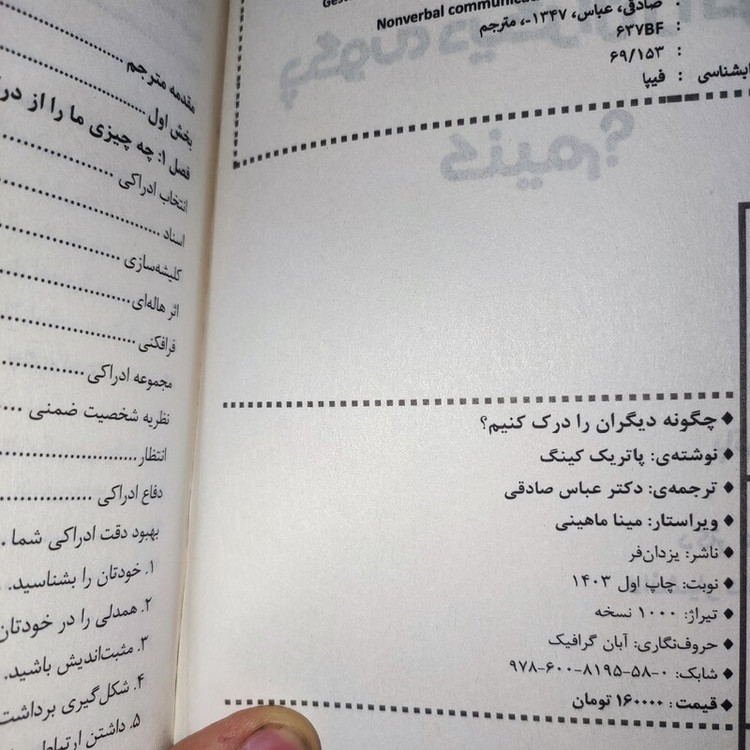 Nonverbal communication
صادقی، عباس، ۱۳۴۷-، مترجم
: ۶۳۷BF
: ۶۹/۱۵۳
: فیپا
◆ چگونه دیگران را درک کنیم؟
◆ نوشته‌ی: پاتریک کینگ
◆ ترجمه‌ی: دکتر عباس صادقی
◆ ویراستار: مینا ماهینی
◆ ناشر: یزدان‌فر
◆ نوبت: چاپ اول ۱۴۰۳
◆ تیراژ: ۱۰۰۰ نسخه
◆ حروف‌نگاری: آبان گرافیک
◆ شابک: ۰-۵۸-۸۱۹۵-۶۰۰-۹۷۸
◆ قیمت: ۱۶۰۰۰۰ تومان
مقدمه مترجم
بخش اول
فصل ۱: چه چیزی ما را از
انتخاب ادراکی
اسناد
کلیشه‌سازی
اثر هاله‌ای
فرافکنی
مجموعه ادراکی
نظریه شخصیت ضمنی
انتظار
دفاع ادراکی
بهبود دقت ادراکی شما
۱. خودتان را بشناسید.
۲. همدلی را در خودتان
۳. مثبت‌اندیش باشید.
۴. شکل‌گیری برداشت
۵. داشتن